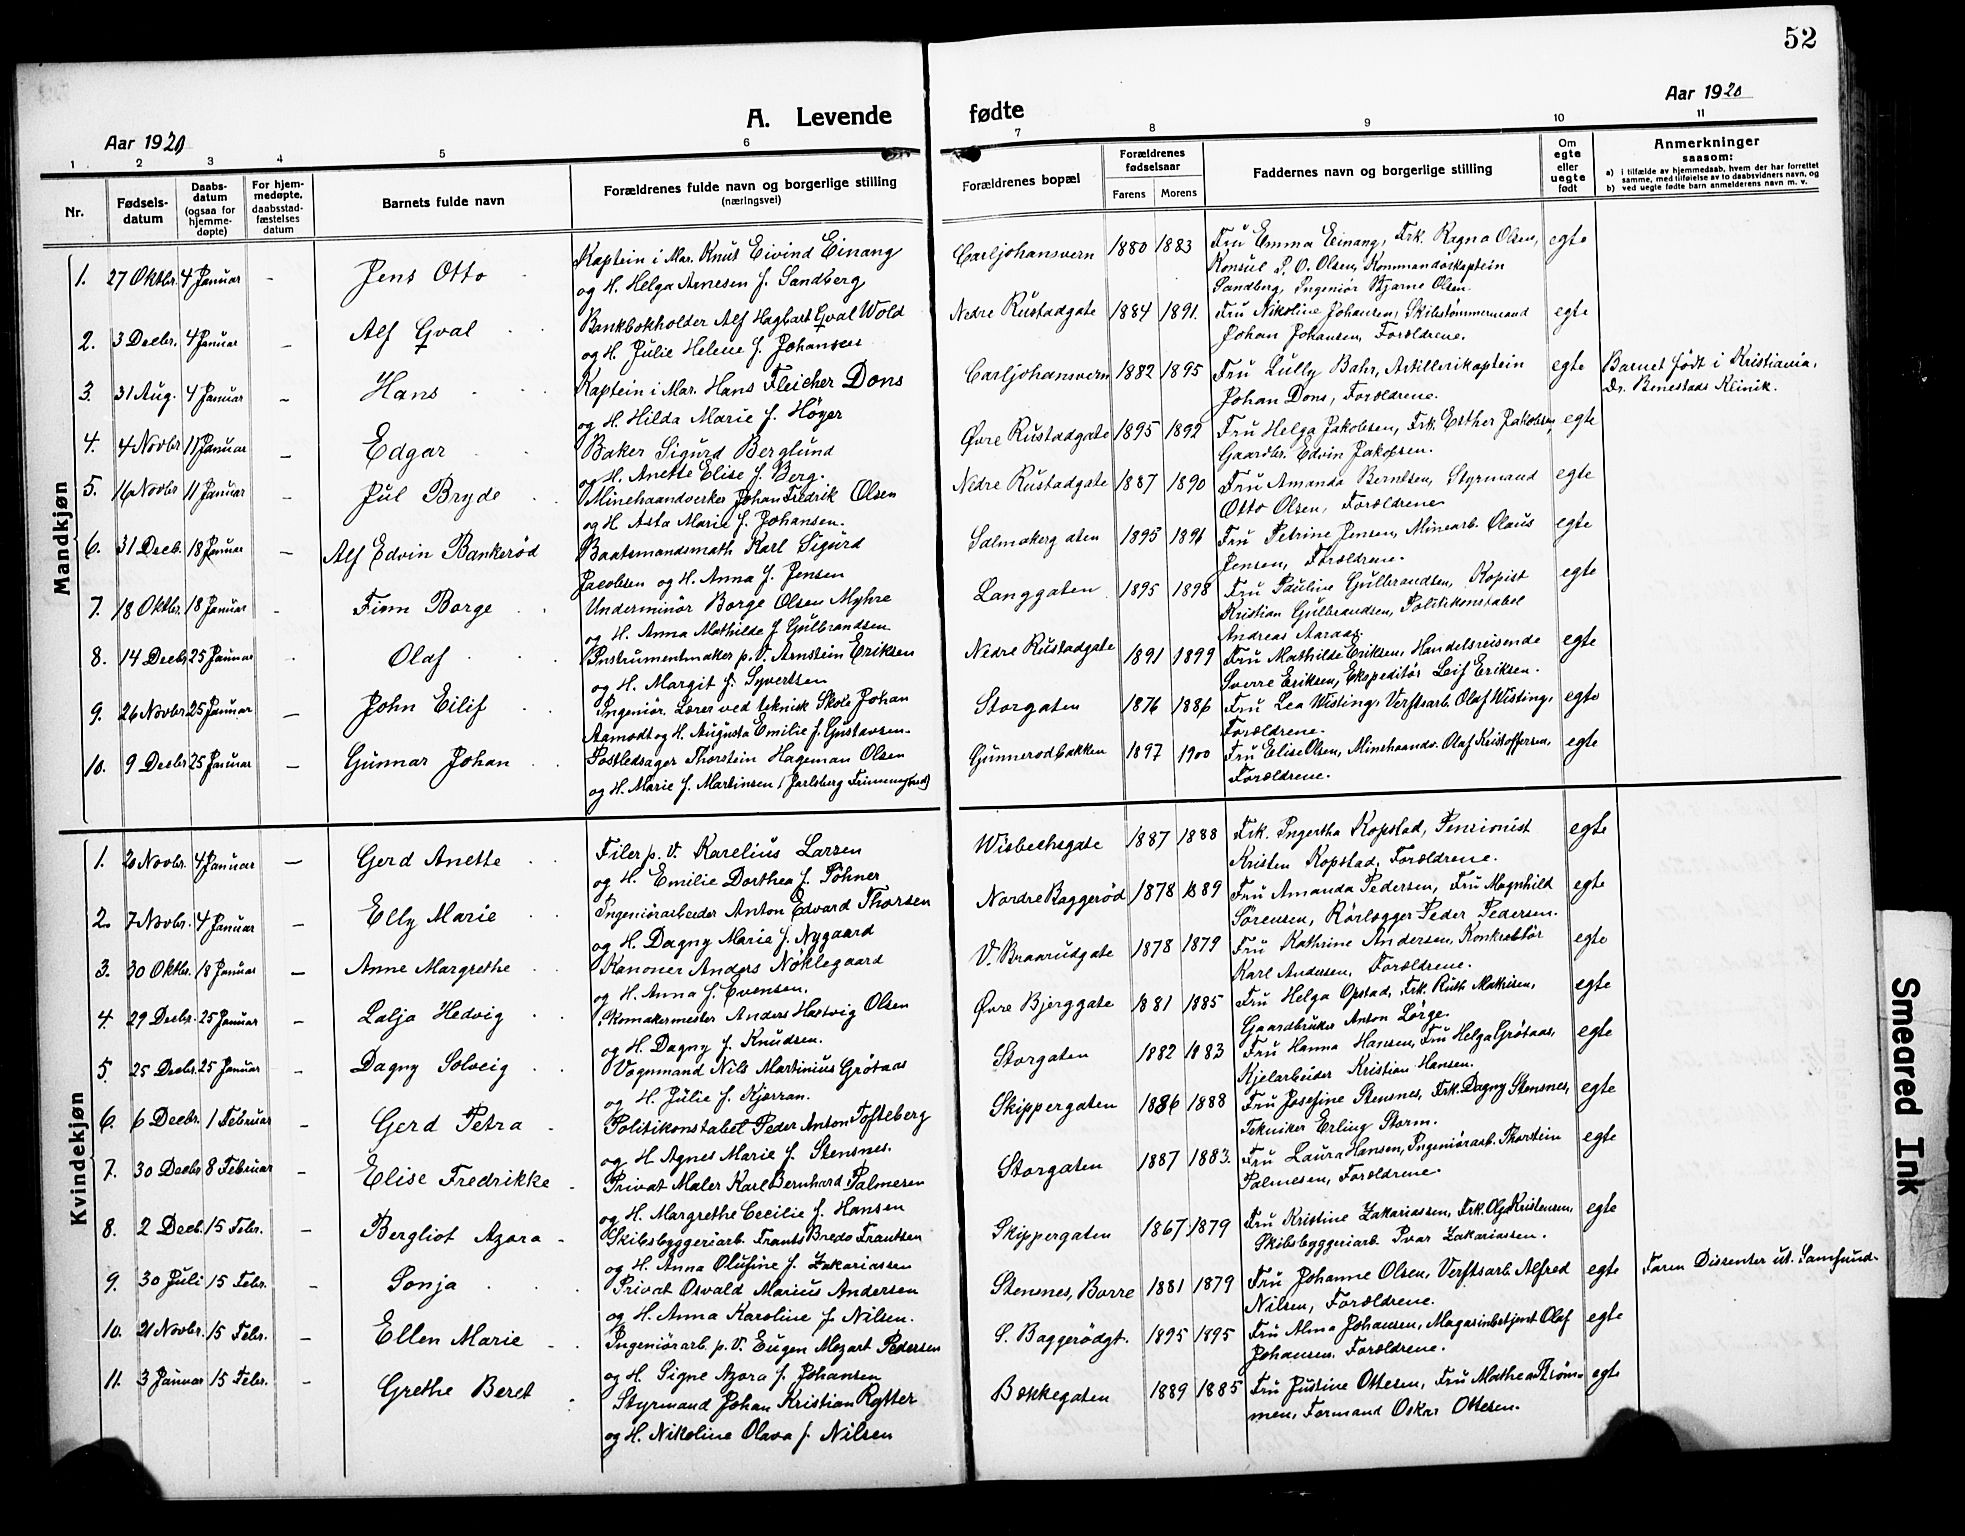 52
Aar 1920
A. Levende fødte
Aar 1920
1 2 3 4 5 6 7 8 9 10 11
Nr.
Fødsels-
datum
Daabs-
datum
(ogsaa for
hjemme-
døpte)
For hjem-
medøpte,
daabsstad-
fæstelses
datum
Barnets fulde navn
Forældrenes fulde navn og borgerlige stilling
(næringsvei)
Forældrenes bopæl
Forældrenes
fødselsaar
Farens Morens
Faddernes navn og borgerlige stilling
Om
egte
eller
uegte
født
Anmerkninger
saasom:
a) i tilfælde av hjemmedaab, hvem der har forrettet
samme, med tilføielse av to daabsvidners navn, og
b) ved uegte fødte barn anmelderens navn m. v.
Mandkjøn
1. 27 Oktbr. 4 Januar - Jens Otto - Kaptein i Mar. Knut Eivind Einang Carljohansvern 1880 1883 Fru Emma Einang, Frk. Ragna Olsen, egte
og H. Helga Arnesen f. Sandberg Konsul P. O. Olsen, Kommandørkaptein
Sandberg, Ingeniør Bjarne Olsen.
2. 3 Decbr. 4 Januar - Alf Qval Bankbokholder Alf Hagbart Qval Wold Nedre Rustadgate 1884 1891. Fru Nikoline Johansen, Skibstømmermand egte
og H. Julie Helene f. Johansen Johan Johansen, Forældrene.
3. 31 Aug. 4 Januar - Hans Kaptein i Mar. Hans Fleicher Dons Carljohansvern 1882 1895 Fru Lully Bahr, Artillerikaptein egte Barnet født i Kristiania,
og H. Hilda Marie f. Høyer Johan Dons, Forældrene. Dr. Benestads Klinik.
4. 4 Novbr. 11 Januar - Edgar Baker Sigurd Berglund Øvre Rustadgate 1895 1892 Fru Helga Jakobsen, Frk. Esther Jakobsen, egte
og H. Anette Elise f. Berg. Gaardbr. Edvin Jakobsen.
5. 16 Novbr 11 Januar - Jul Bryde Minehaandverker Johan Fredrik Olsen Nedre Rustadgate 1887 1890 Fru Amanda Berntsen, Styrmand egte
og H. Asta Marie f. Johansen. Otto Olsen, Forældrene
6. 31 Decb. 18 Januar - Alf Edvin Bankerød Baatsmandsmath Karl Sigurd Salmakergaten 1895 1896 Fru Petrine Jensen, Minearb. Olaus egte
Jacobsen og H. Anna f. Jensen Jensen, Forældrene.
7. 18 Oktbr. 18 Januar - Finn Borge Underminør Borge Olsen Myhre Langgaten 1895 1898 Fru Pauline Gulbrandsen, Kopist egte
og H. Anna Mathilde f. Gulbrandsen Kristian Gulbrandsen, Politikonstabel
Andreas Aaraas.
8. 14 Decbr 25 Januar - Olaf Instrumentmaker p. V. Arnstein Eriksen Nedre Rustadgate 1891 1899 Fru Mathilde Eriksen, Handelsreisende egte
og H. Margit f. Syvertsen Sverre Eriksen, Ekspeditør Leif Eriksen.
9. 26 Novbr. 25 Januar - John Eilif Ingeniør. Lærer ved teknisk Skole Johan Storgaten 1876 1886 Fru Lea Wisting, Verftsarb. Olaf Wisting, egte
Aamodt og H. Augusta Emilie f. Gustavsen. Forældrene.
10. 9 Decbr 25 Januar - Gunnar Johan Postledsager Thorstein Hageman Olsen Gunnerødbakken 1897 1900 Fru Elise Olsen, Minehaandv. Olaf Kristoffersen, egte
og H. Marie f. Martinsen (Jarlsberg Frimenighed) Forældrene.
Kvindekjøn
1. 20 Novbr. 4 Januar - Gerd Anette Filer p. V. Karelius Larsen Wisbechsgate 1887 1888 Frk. Ingertha Kopstad, Pensionist egte
og H. Emilie Dorthea f. Pöhner Kristen Kopstad, Forældrene.
2. 7 Novbr. 4 Januar - Elly Marie Ingeniørarbeider Anton Edvard Thorsen Nordre Baggerød 1878 1889 Fru Amanda Pedersen, Fru Magnhild egte
og H. Dagny Marie f. Nygaard Sørensen, Rørlægger Peder Pedersen.
3. 30 Oktbr. 18 Januar - Anne Margrethe Kanoner Anders Nöklegaard V. Braarudgate 1878 1879 Fru Kathrine Andersen, Konkreblør egte
og H. Anna f. Evensen. Karl Andersen, Forældrene.
4. 29 Decbr. 25 Januar - Lalja Hedvig Skomakermester Anders Hartvig Olsen Øvre Bjerggate 1881 1885 Fru Helga Opstad, Frk. Ruth Mathisen, egte
og H. Dagny f. Knudsen. Gaardbruker Anton Lørge.
5. 25 Decbr. 25 Januar - Dagny Solveig Vognmand Nils Martinius Grötaas Storgaten 1882 1883 Fru Hanna Hansen, Fru Helga Grötaas, egte
og H. Julie f. Kjærran. Kjelarbeider Kristian Hansen.
6. 6 Decbr. 1 Februar - Gerd Petra - Politikonstabel Peder Anton Tofteberg Skippergaten 1886 1888 Fru Josefine Stensnes, Frk. Dagny Stensnes, egte
og H. Agnes Marie f. Stensnes. Tekniker Erling Storm.
7. 30 Decbr 8 Februar - Elise Fredrikke - Privat Maler Karl Bernhard Palmesen Storgaten 1887 1883. Fru Laura Hansen, Ingeniørarb. Thorstein egte
og H. Margrethe Cecilie f. Hansen Palmesen, Forældrene.
8. 2 Decb. 15 Febr. - Bergliot Azora - Skibsbyggeriarb. Frants Bredo Frantsen Skippergaten 1867 1879 Fru Kristine Zakariassen, Frk. Olg. Kristensen, egte
og H. Anna Olufine f. Zakariassen Skibsbyggeriarb. Ivar Zakariassen.
9. 30 Juli 15 Febr. - Sonja Privat Osvald Marius Andersen Stensnes, Borre 1881 1879 Fru Johanne Olsen, Verftsarb. Alfred egte Faren Dissenter ut. Samfund.
og H. Anna Karoline f. Nilsen. Nilsen, Forældrene.
10. 21 Novbr. 15 Febr. - Ellen Marie - Ingeniørarb. p. V. Eugen Mozart Pedersen S. Baggerødgt. 1895 1895 Fru Alma Johansen, Magasinbetjent Olaf egte
og H. Signe Azora f. Johansen Johansen, Forældrene.
11. 3 Januar 15 Febr. - Grethe Beret Styrmand Johan Kristian Rytter Bækkegaten 1889 1885 Fru Justine Ottesen, Fru Mathea Strøm- egte
og H. Nikoline Olava f. Nilsen men, Formand Oskar Ottesen.
Smeared Ink